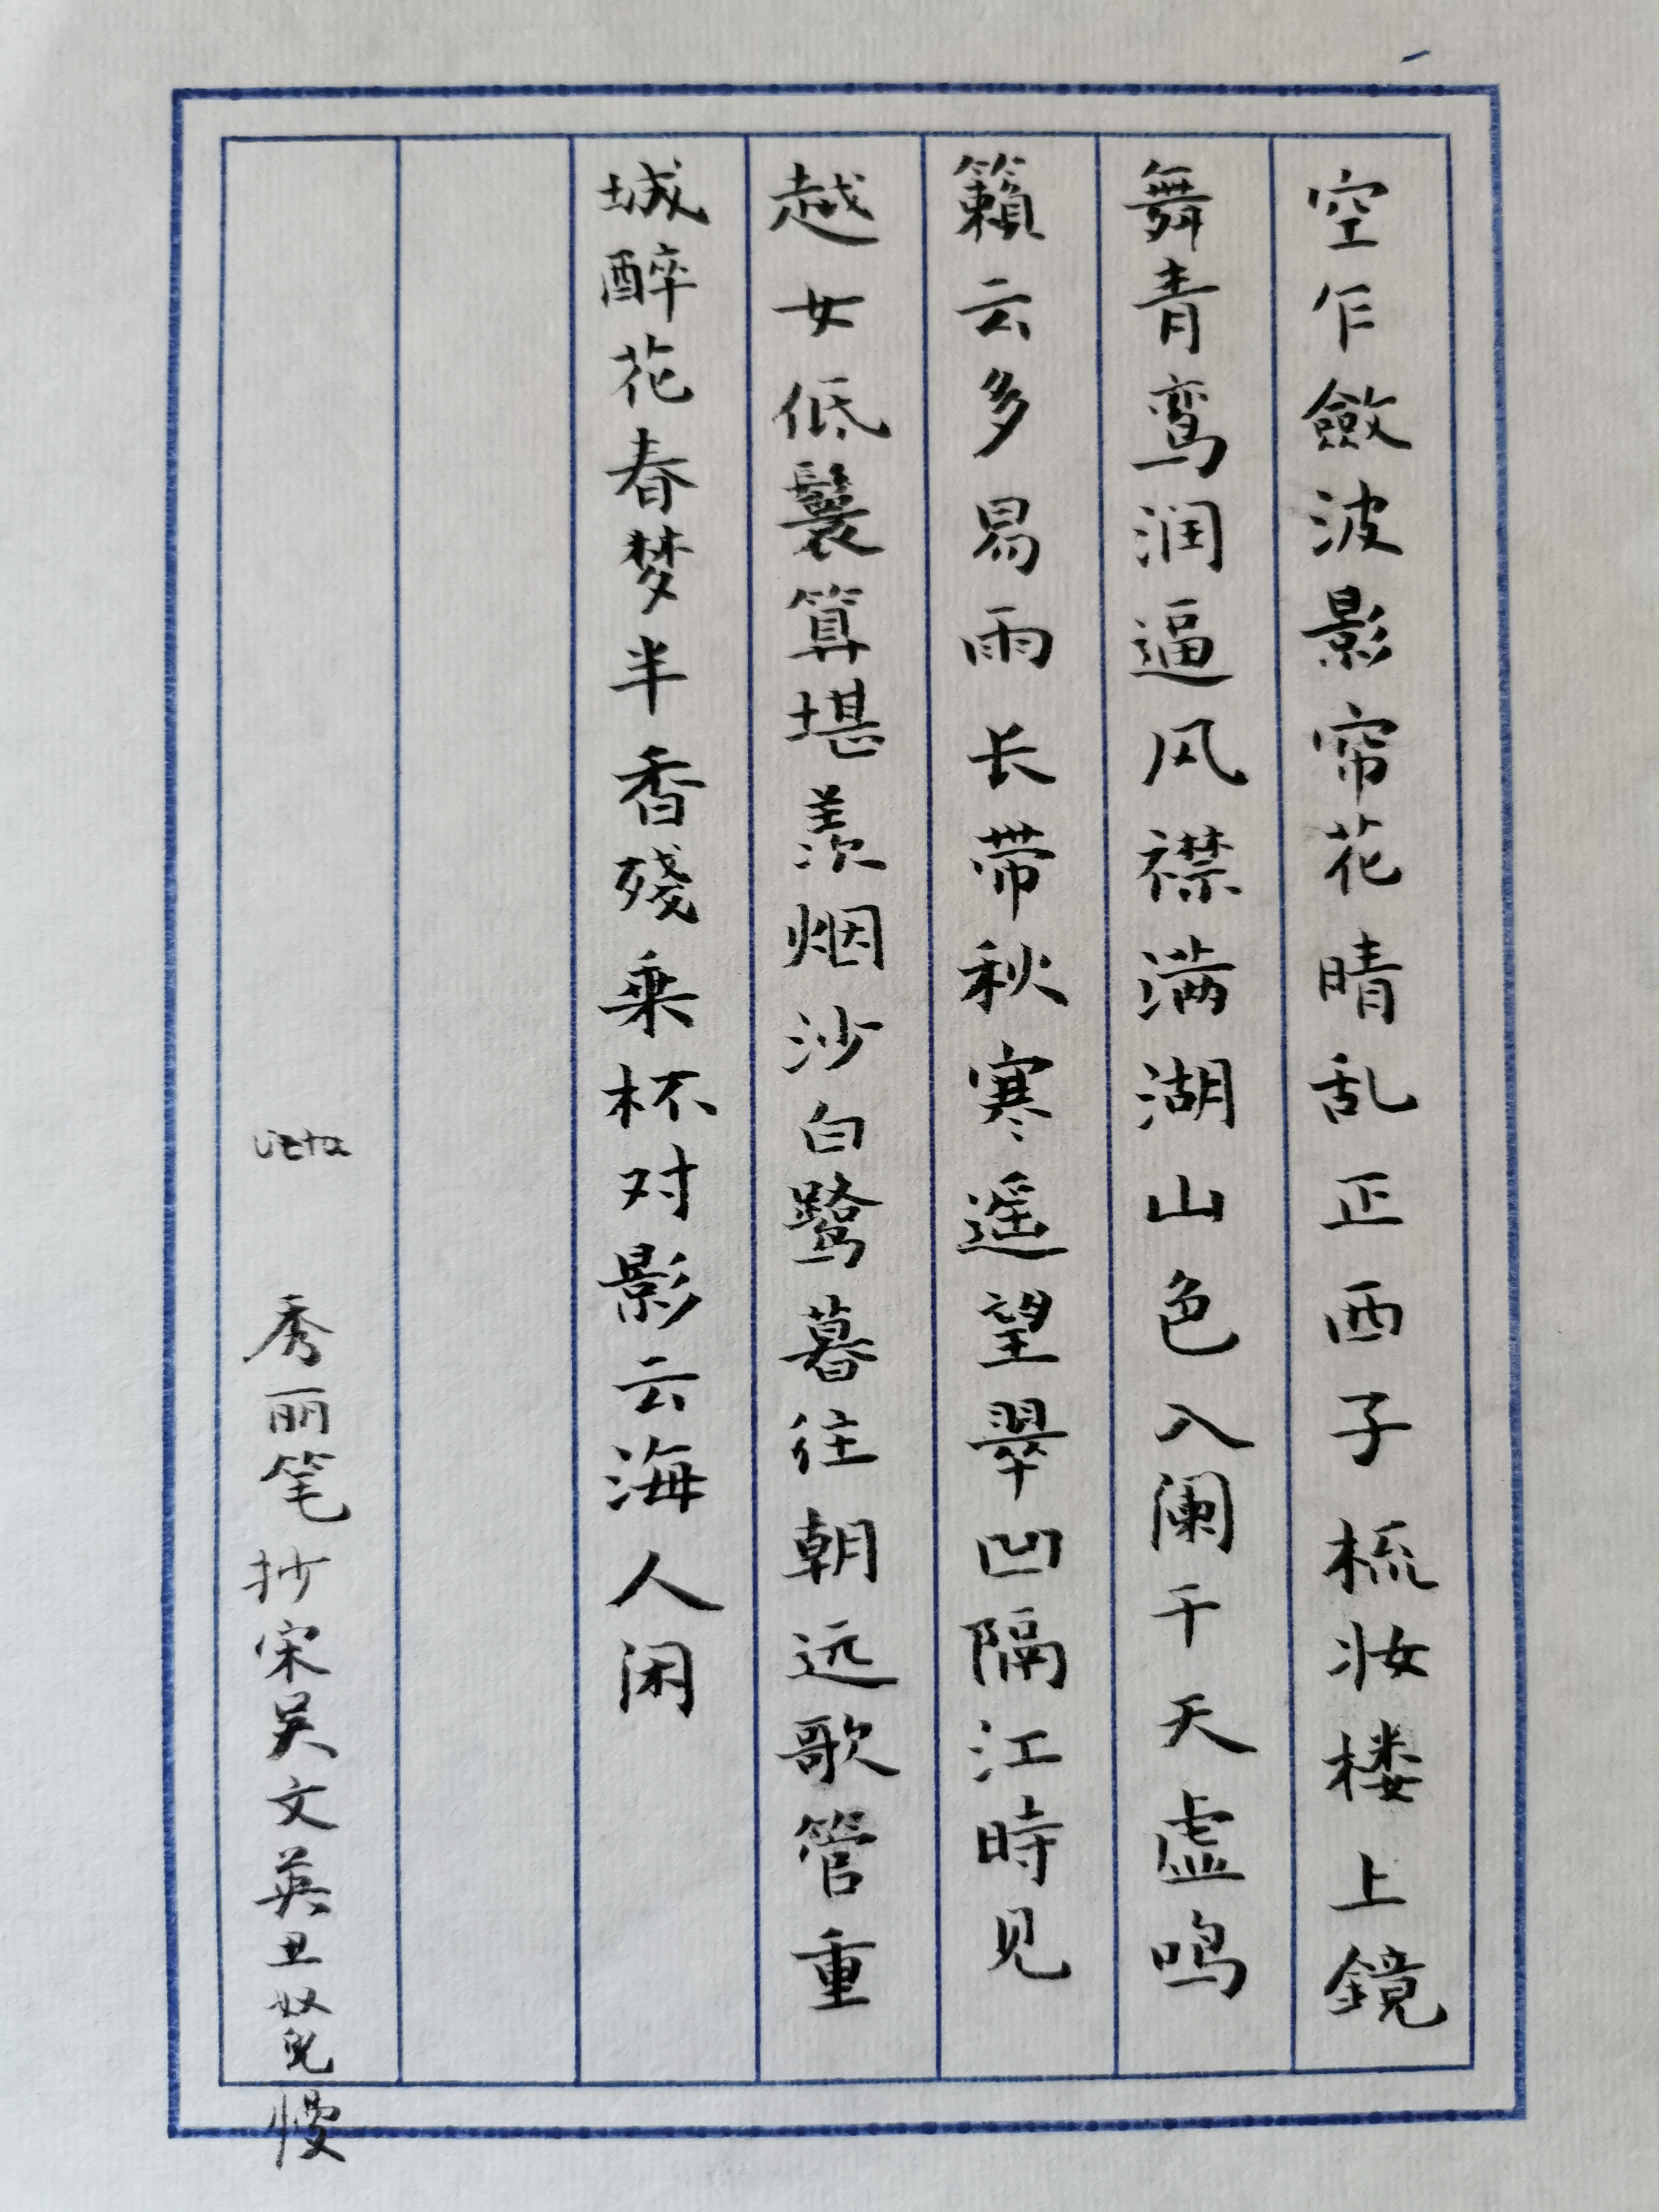 空乍斂波影帘花晴乱正西子梳妆楼上鏡
舞青鸾润逼风襟满湖山色入阑干天虚鸣
籟云多易雨长带秋寒遥望翠凹隔江時见
越女低鬟算堪羡烟沙白鹭暮往朝远歌管重
城醉花春梦半香殘乘杯对影云海人闲
veta 秀丽笔抄宋吴文英丑奴儿慢